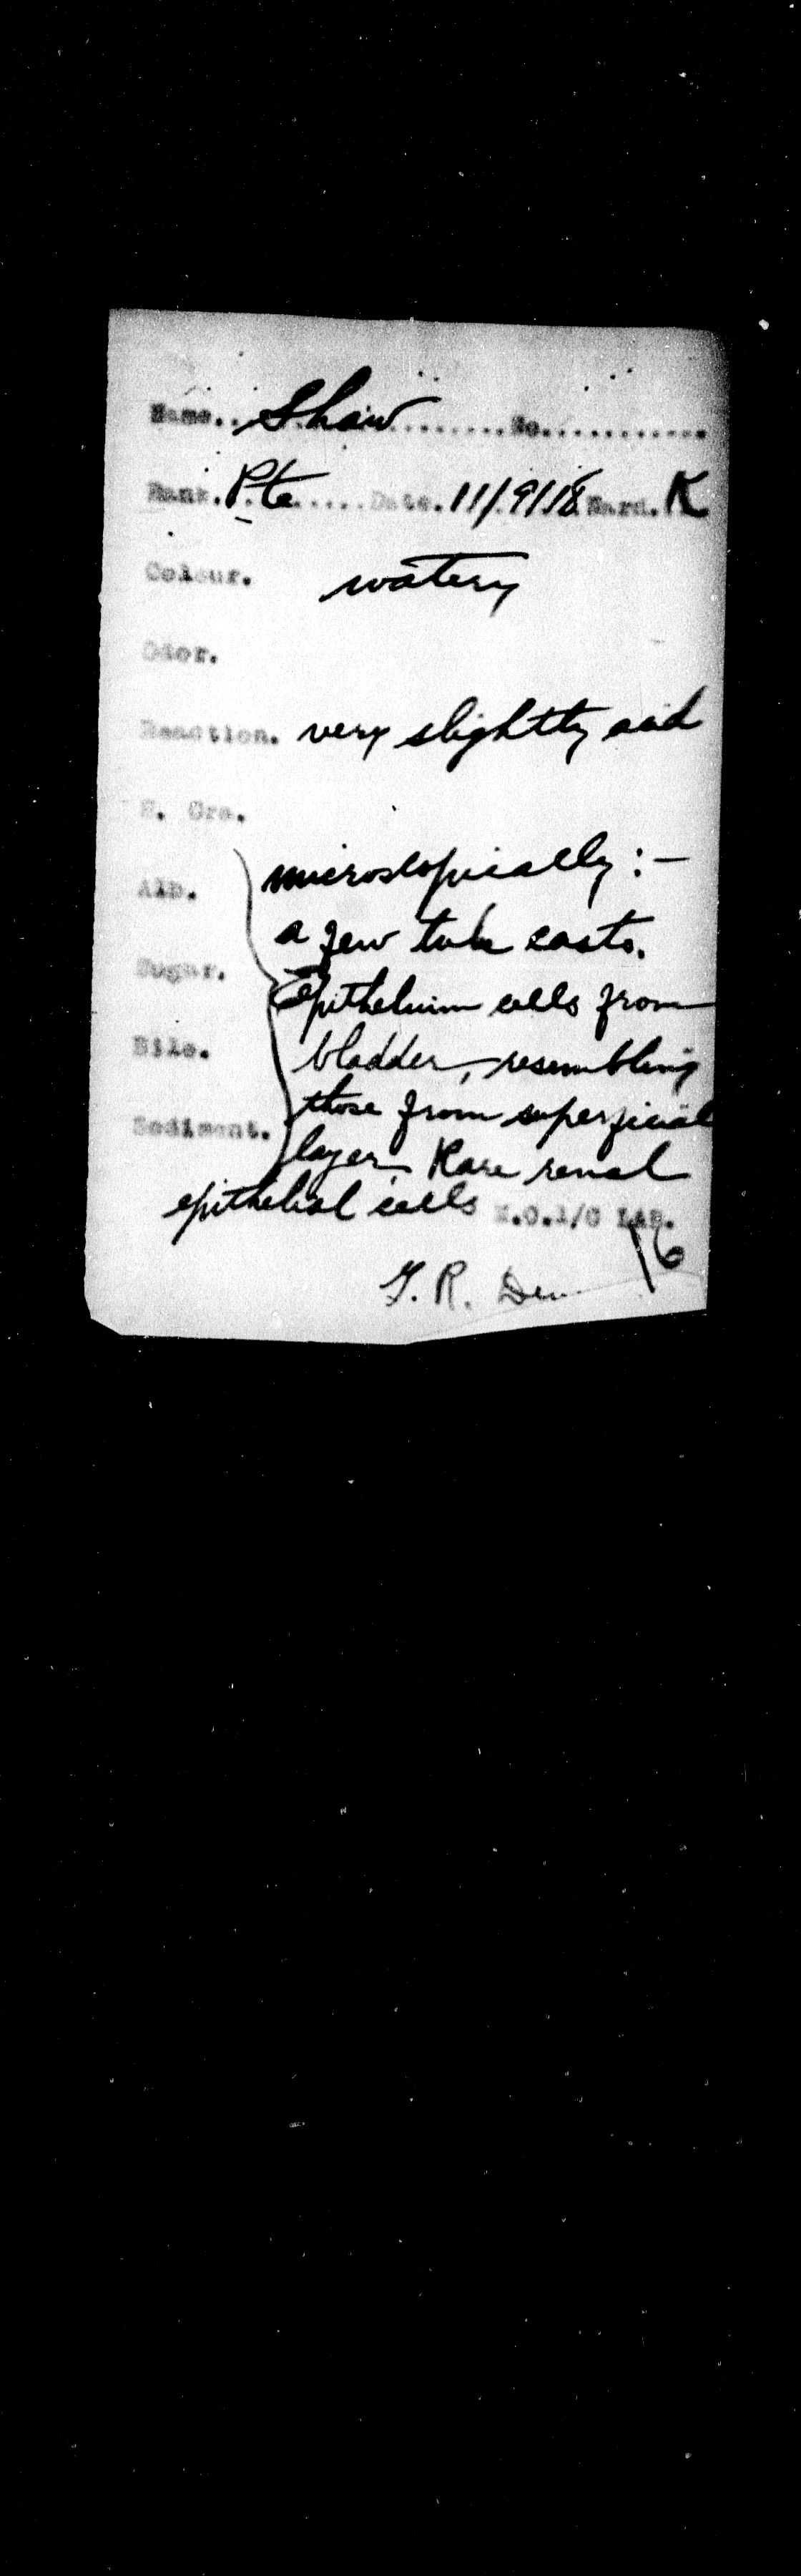 Name..Shaw.........No............
Rank.Pte.....Date.11/9/18.Ward.K
Colour. watery
Odor.
Reaction. very slightly acid
S. Gra.
microscopically:-
Alb.
a few tube casts.
Sugar.
Epithelium cells from
Bile. bladder, resembling
those from superficial
Sediment.
layer. Rare renal
epithelial cells
I/C LAB.
16